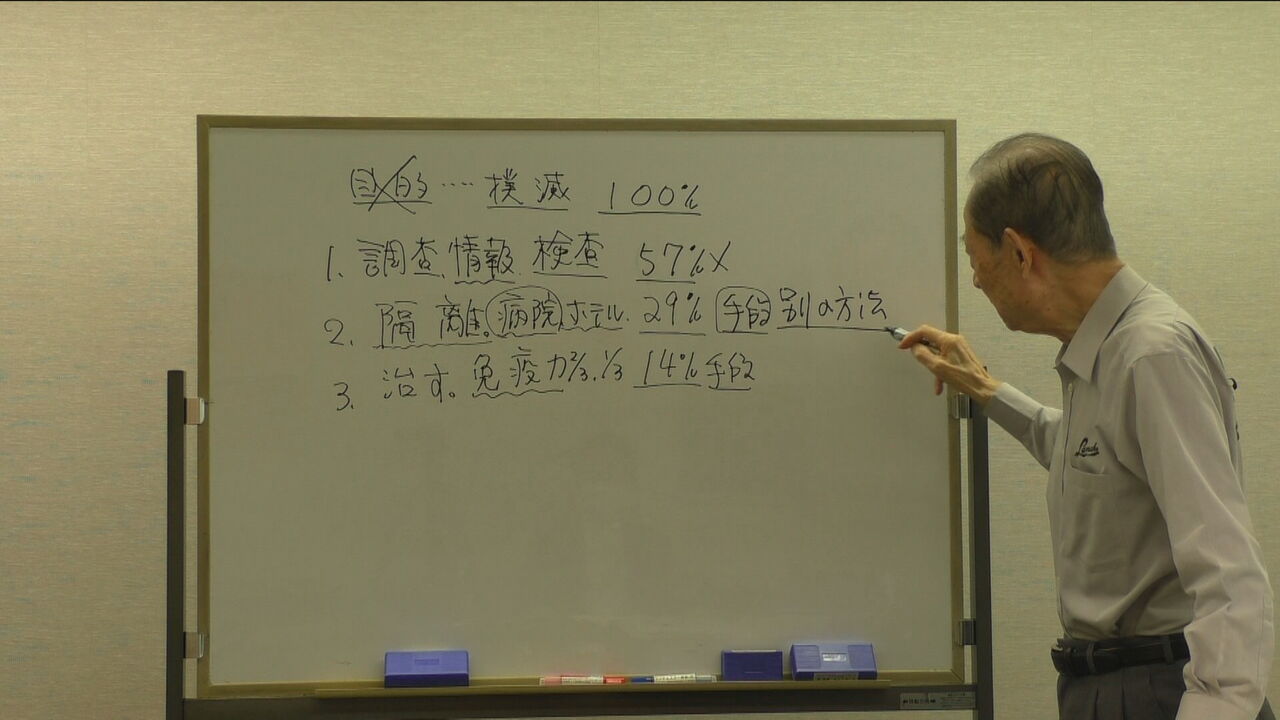 目的 ···· 撲滅 100%
1. 調査、情報、検査 57%×
2. 隔離。病院 ホテル. 29% 手段 別の方法
3. 治す。免疫力 2/3. 1/3 14% 手段